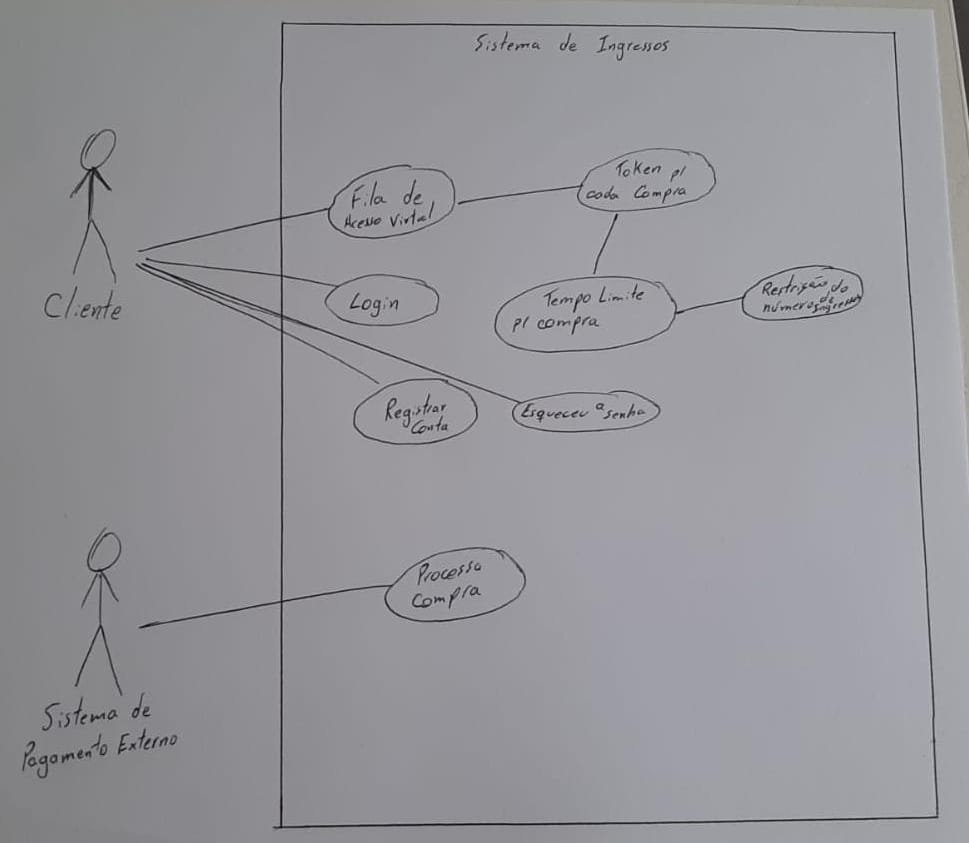 Sistema de Ingressos
Token p/
cada Compra
Fila de
Acesso Virtual
Cliente
Login
Tempo Limite
p/ compra
Restrição do
números de ingressos
Registrar
Conta
Esqueceu a senha
Processa
Compra
Sistema de
Pagamento Externo